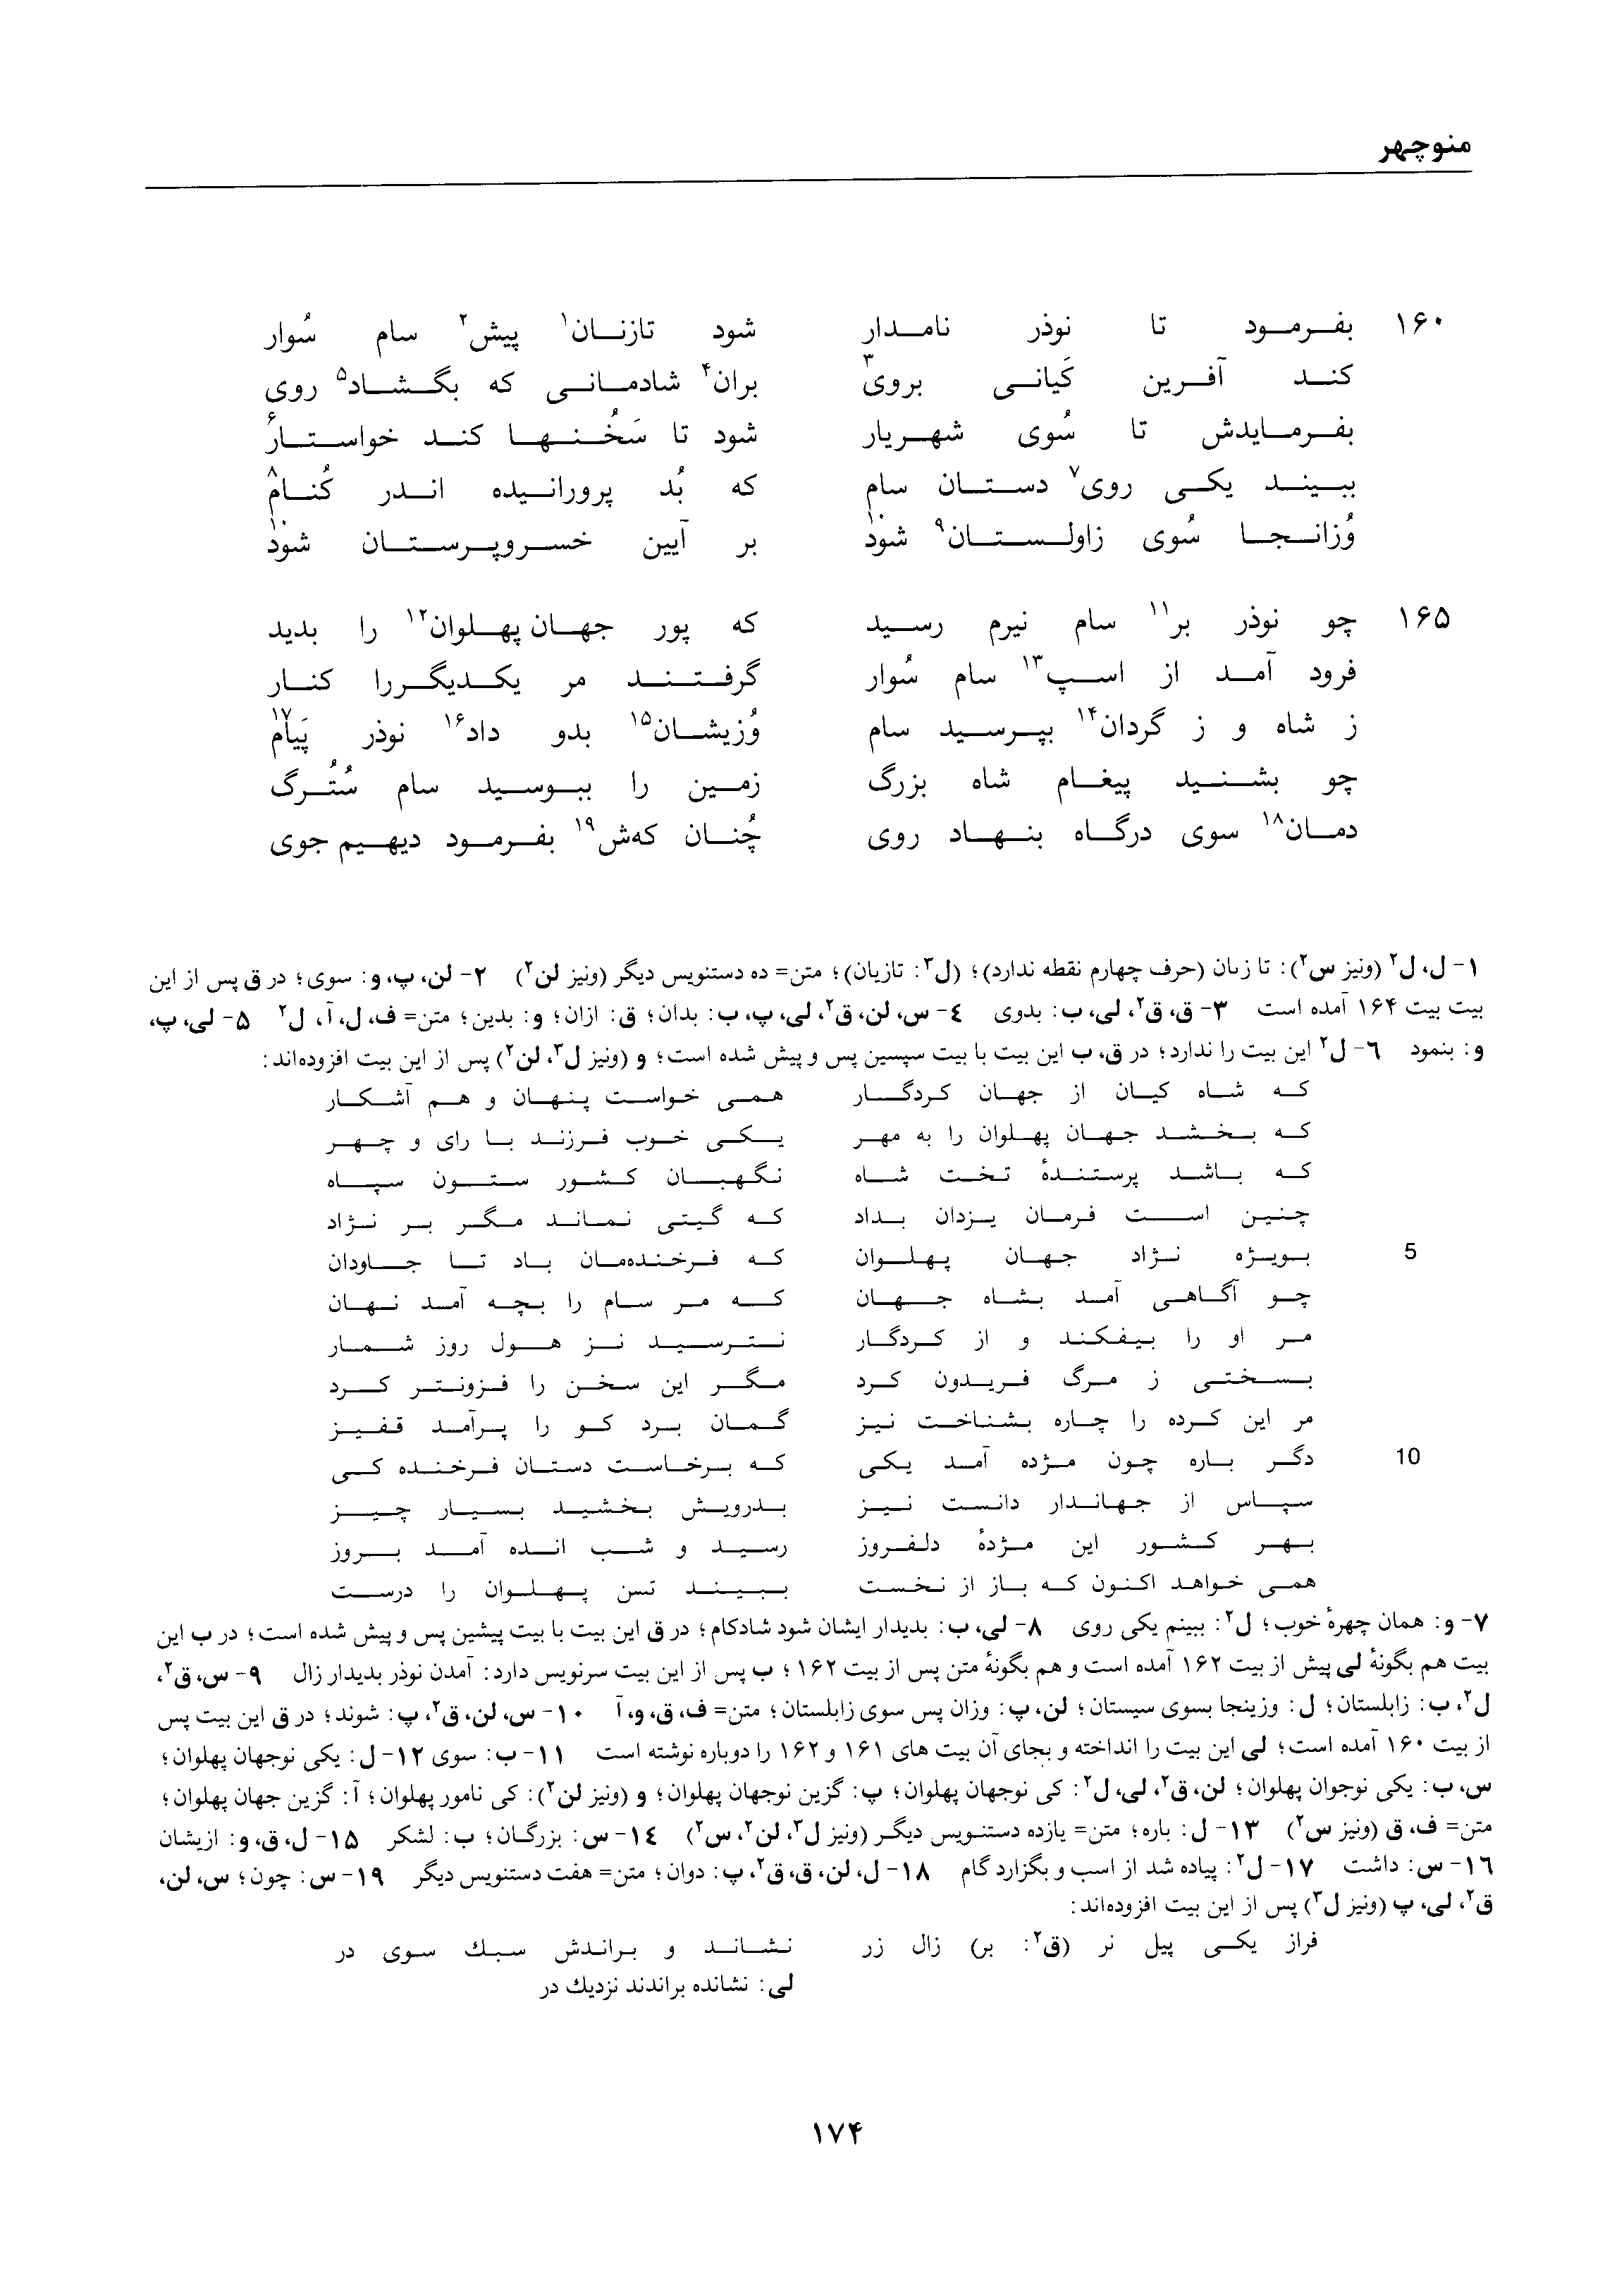 منوچهر
۱۶۰ بفرمود تا نوذر نامدار شود تازنان۱ پیش۲ سام سُوار
کند آفرین کَیانی بروی۳ بران۴ شادمانی که بگشاد۵ روی
بفرمایدش تا سُوی شهریار شود تا سَخُنها کند خواستار۶
ببیند یکی روی۷ دستان سام که بُد پرورانیده اندر کُنام۸
وُزانجا سُوی زاولستان۹ شود۱۰ بر آیین خسروپرستان شود۱۰
۱۶۵ چو نوذر بر۱۱ سام نیرم رسید که پور جهان پهلوان۱۲ را بدید
فرود آمد از اسپ۱۳ سام سُوار گرفتند مر یکدیگررا کنار
ز شاه و ز گردان۱۴ بپرسید سام وُزیشان۱۵ بدو داد۱۶ نوذر پَیام۱۷
چو بشنید پیغام شاه بزرگ زمین را ببوسید سام سُتُرگ
دمان۱۸ سوی درگاه بنهاد روی چُنان کەش۱۹ بفرمود دیهیم جوی
۱- ل، ل۲ (ونیز س۲): تا زبان (حرف چهارم نقطه ندارد)؛ (ل۳: تازیان)؛ متن= ده دستنویس دیگر (ونیز لن۲) ۲- لن، پ، و: سوی؛ در ق پس از این
بیت بیت ۱۶۴ آمده است ۳- ق، ق۲، لی، ب: بدوی ٤- س، لن، ق۲، لی، پ، ب: بدان؛ ق: ازان؛ و: بدین؛ متن= ف، ل، آ، ل۲ ۵- لی، پ،
و: بنمود ٦- ل۲ این بیت را ندارد؛ در ق، ب این بیت با بیت سپسین پس و پیش شده است؛ و (ونیز ل۳، لن۲) پس از این بیت افزوده‌اند:
که شاه کیان از جهان کردگار همی خواست پنهان و هم آشکار
که بخشد جهان پهلوان را به مهر یکی خوب فرزند با رای و چهر
که باشد پرستندهٔ تخت شاه نگهبان کشور ستون سپاه
چنین است فرمان یزدان بداد که گیتی نماند مگر بر نژاد
5 بویژه نژاد جهان پهلوان که فرخنده‌مان باد تا جاودان
چو آگاهی آمد بشاه جهان که مر سام را بچه آمد نهان
مر او را بیفکند و از کردگار نترسید نز هول روز شمار
بسختی ز مرگ فریدون کرد مگر این سخن را فزونتر کرد
مر این کرده را چاره بشناخت نیز گمان برد کو را برآمد قفیز
10 دگر باره چون مژده آمد یکی که برخاست دستان فرخنده کی
سپاس از جهاندار دانست نیز بدرویش بخشید بسیار چیز
بهر کشور این مژدهٔ دلفروز رسید و شب انده آمد بروز
همی خواهد اکنون که باز از نخست ببیند تن پهلوان را درست
۷- و: همان چهرهٔ خوب؛ ل۲: ببینم یکی روی ۸- لی، ب: بدیدار ایشان شود شادکام؛ در ق این بیت با بیت پیشین پس و پیش شده است؛ در ب این
بیت هم بگونهٔ لی پیش از بیت ۱۶۲ آمده است و هم بگونهٔ متن پس از بیت ۱۶۲ ؛ ب پس از این بیت سرنویس دارد: آمدن نوذر بدیدار زال ۹- س، ق۲،
ل۲، ب: زابلستان؛ ل: وزینجا بسوی سیستان؛ لن، پ: وزان پس سوی زابلستان؛ متن= ف، ق، و، آ ۱۰- س، لن، ق۲، پ: شوند؛ در ق این بیت پس
از بیت ۱۶۰ آمده است؛ لی این بیت را انداخته و بجای آن بیت های ۱۶۱ و ۱۶۲ را دوباره نوشته است ۱۱- ب: سوی ۱۲- ل: یکی نوجهان پهلوان؛
س، ب: یکی نوجوان پهلوان؛ لن، ق۲، لی، ل۲: کی نوجهان پهلوان؛ پ: گزین نوجهان پهلوان؛ و (ونیز لن۲): کی نامور پهلوان؛ آ: گزین جهان پهلوان؛
متن= ف، ق (ونیز س۲) ۱۳- ل: باره؛ متن= یازده دستنویس دیگر (ونیز ل۳، لن۲، س۲) ۱٤- س: بزرگان؛ ب: لشکر ۱۵- ل، ق، و: ازیشان
۱٦- س: داشت ۱۷- ل۲: پیاده شد از اسب و بگزارد گام ۱۸- ل، لن، ق، ق۲، پ: دوان؛ متن= هفت دستنویس دیگر ۱۹- س: چون؛ س، لن،
ق۲، لی، پ (ونیز ل۳) پس از این بیت افزوده‌اند:
فراز یکی پیل نر (ق۲: بر) زال زر نشاند و براندش سبك سوی در
لی: نشانده براندند نزدیك در
۱۷۴